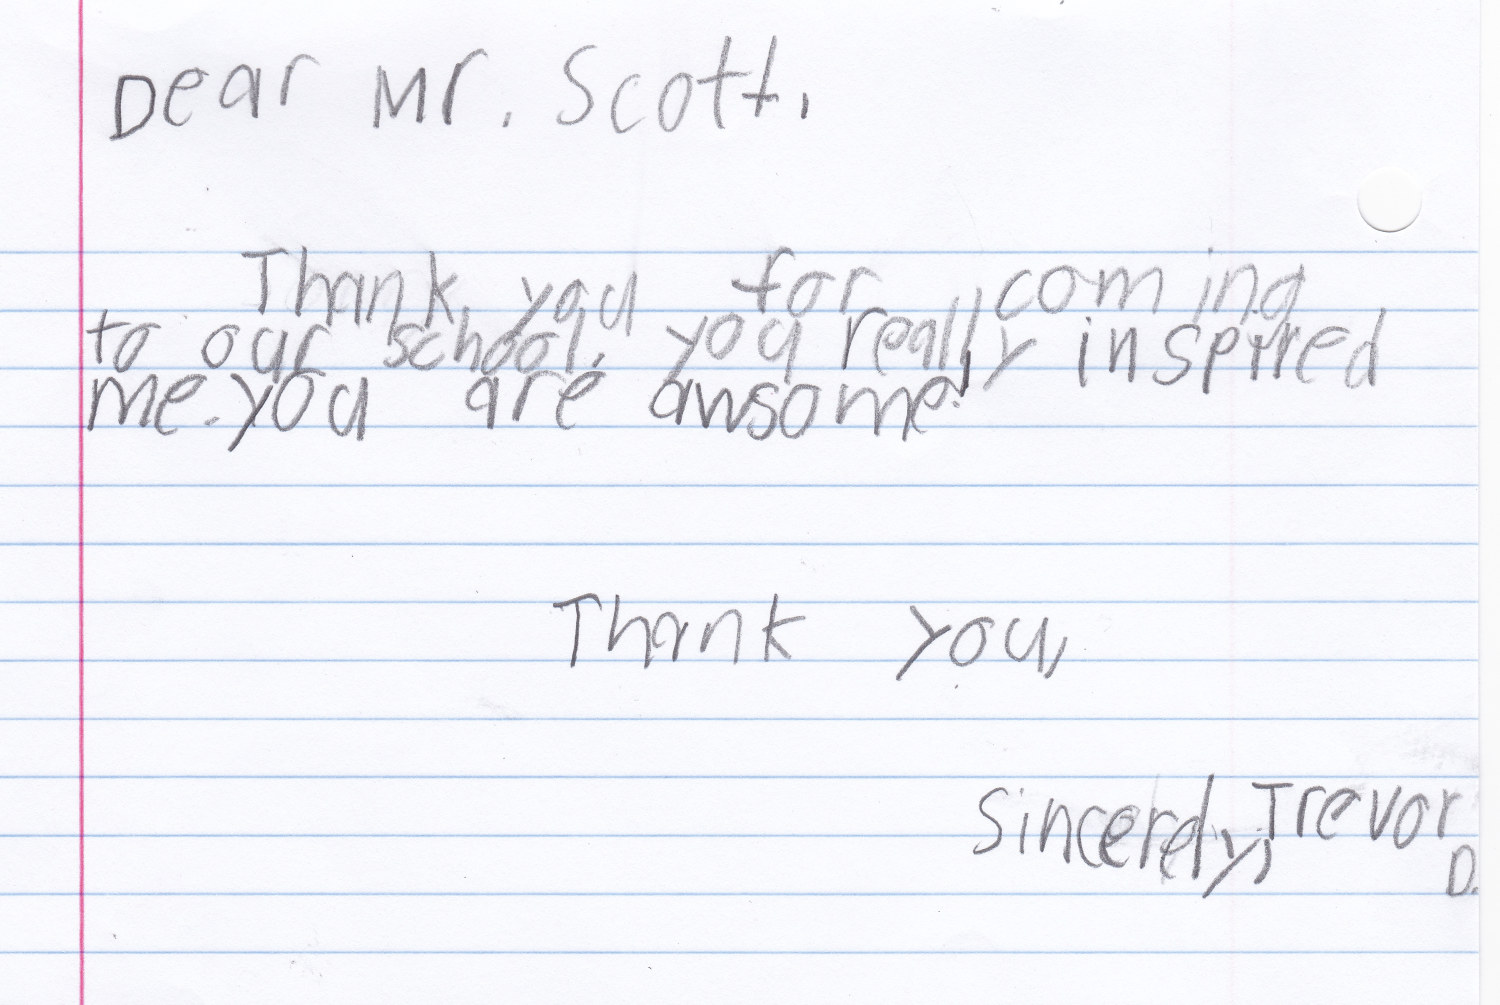 Dear Mr. Scott,
Thank you for coming
to our school. you really inspired
me. you are awsome!
Thank you,
Sincerely, Trevor
D.